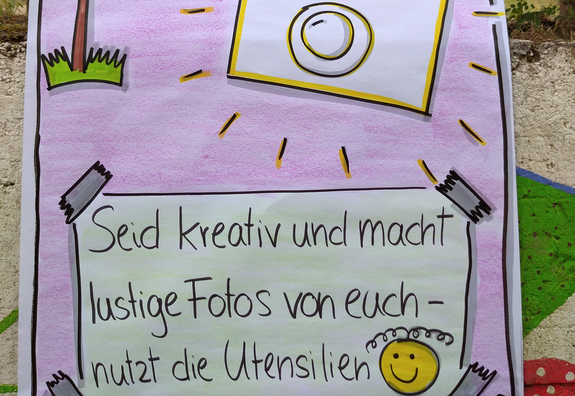 Seid kreativ und macht
lustige Fotos von euch -
nutzt die Utensilien